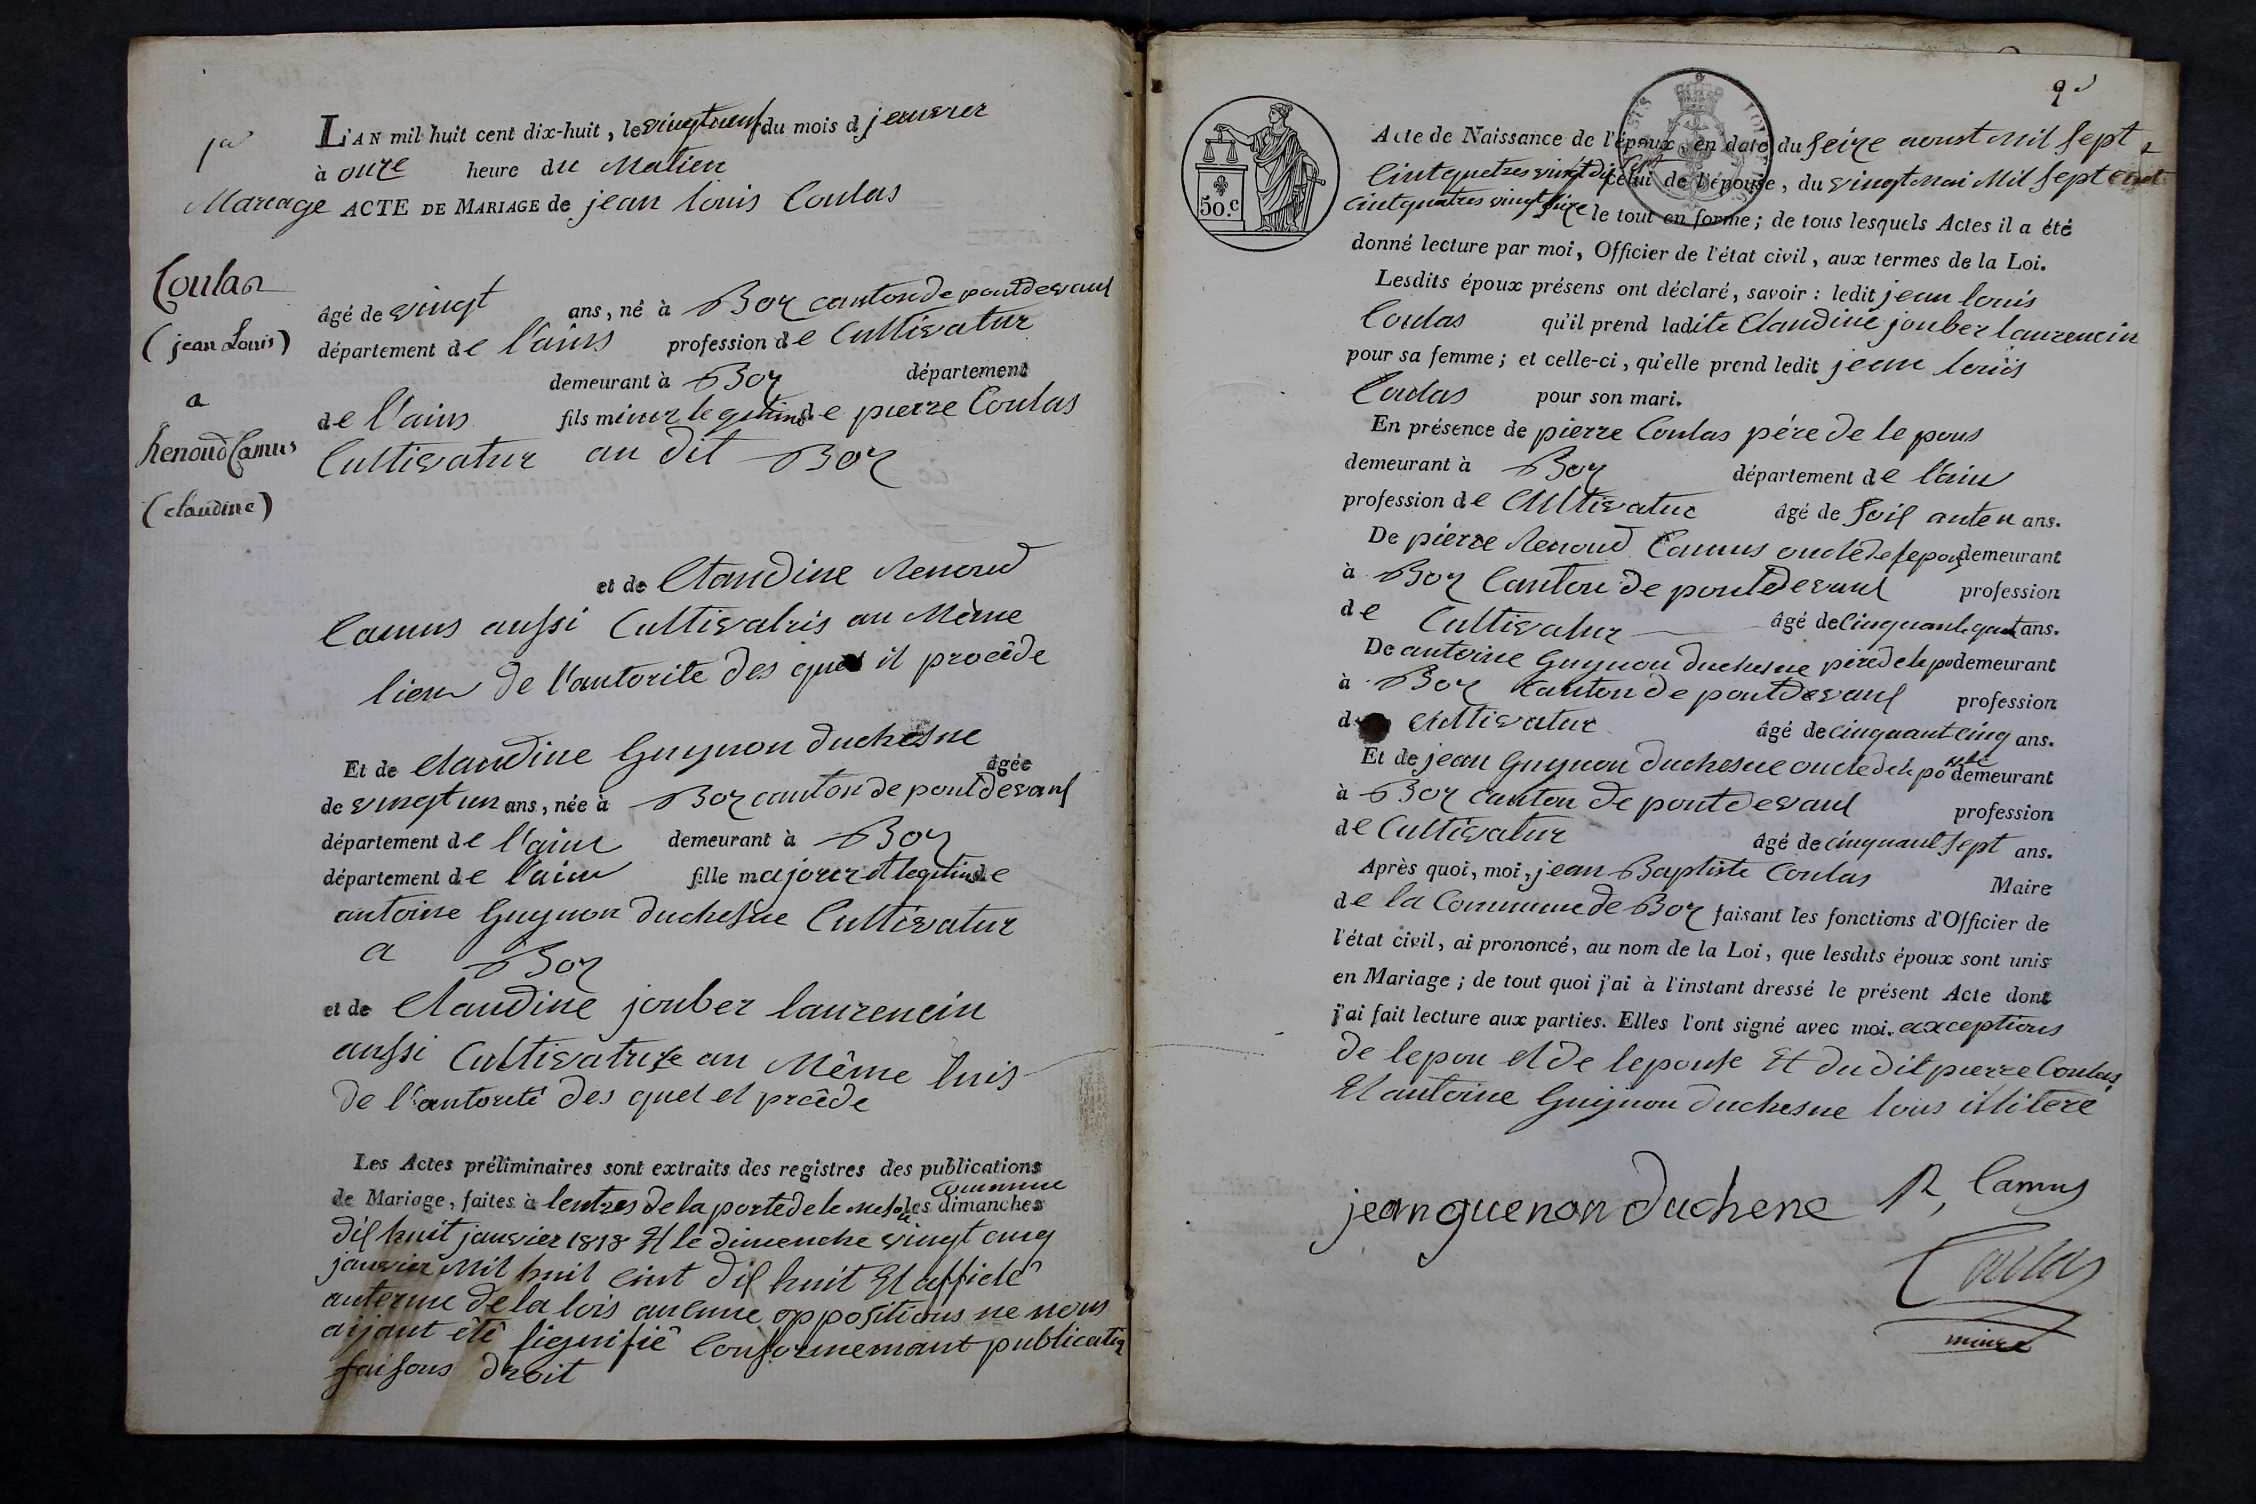 1er
L'AN mil huit cent dix-huit, le vingt neuf du mois d jeanvier
à onze heure du Matien
Mariage ACTE DE MARIAGE de jean louis Coulas
Coulas
(jean Louis)
a
Renoud Camus
(claudine)
âgé de vingt ans, né à Boz canton de pontdevaul
département de l'ains profession de Cultivatur
demeurant à Boz département
de l'ains fils mineur legitime de pierre Coulas
Cultivatur au dit Boz
et de Claudine Renoud
Camus aussi Cultivatris au Mème
lieu de l'autorite des quel il procêde
Et de claudine Guynon duchesne âgée
de vingt un ans, née à Boz canton de pontdevaul
département de l'ain demeurant à Boz
département de l'ain fille majeure et legitime de
antoine Guynon duchesne Cultivatur
a Boz
et de Claudine jouber laurencin
aussi Cultivatrice au Même luis
de l'autorité des quel el procêde
Les Actes préliminaires sont extraits des registres des publications
de Mariage, faites à lentres de la porte de le mesou commune les dimanches
dil huit janvier 1818 Et le dimenche vingt cinq
janvier Mil huit cint dil huit Et affiche
auterme de la lois aucune oppositions ne nous
aijant êtê signifiê Conformemant publication
faisons droit
2e
50.c
Acte de Naissance de l'époux, en date du seize aoust Mil sept
cintquatres vingt dis sept Celui de l'épouse, du vingt mai Mil sept cent
cintquatres vingt seize le tout en forme; de tous lesquels Actes il a été
donné lecture par moi, Officier de l'état civil, aux termes de la Loi.
Lesdits époux présens ont déclaré, savoir: ledit jean louis
Coulas qu'il prend ladite Claudine jouber laurencin
pour sa femme; et celle-ci, qu'elle prend ledit jean louis
Coulas pour son mari.
En présence de pierre Coulas pére de le pous
demeurant à Boz département de l'ain
profession de Cultivatur âgé de soisanten ans.
De pierre Renoud Camus oncle de lepous demeurant
à Boz Canton de pontdevaul profession
de Cultivatur âgé de Cinquante quat ans.
De antoine Guynon duchesne pére de lepo demeurant
à Boz canton de pontdevaul profession
de cultivatur âgé de cinquant cinq ans.
Et de jean Guynon duchesne oncle de le po use demeurant
à Boz canton de pontdevaul profession
de Cultivatur âgé de cinquant sept ans.
Après quoi, moi, jean Baptiste Coulas Maire
de la Commune de Boz faisant les fonctions d'Officier de
l'état civil, ai prononcé, au nom de la Loi, que lesdits époux sont unis
en Mariage; de tout quoi j'ai à l'instant dressé le présent Acte dont
j'ai fait lecture aux parties. Elles l'ont signé avec moi. axceptions
de lepou et de lepouse Et du dit pierre Coulas
Et antoine Guijnon duchesne tous illitere
jean guenon duchene R, Camus
Coulas
maire